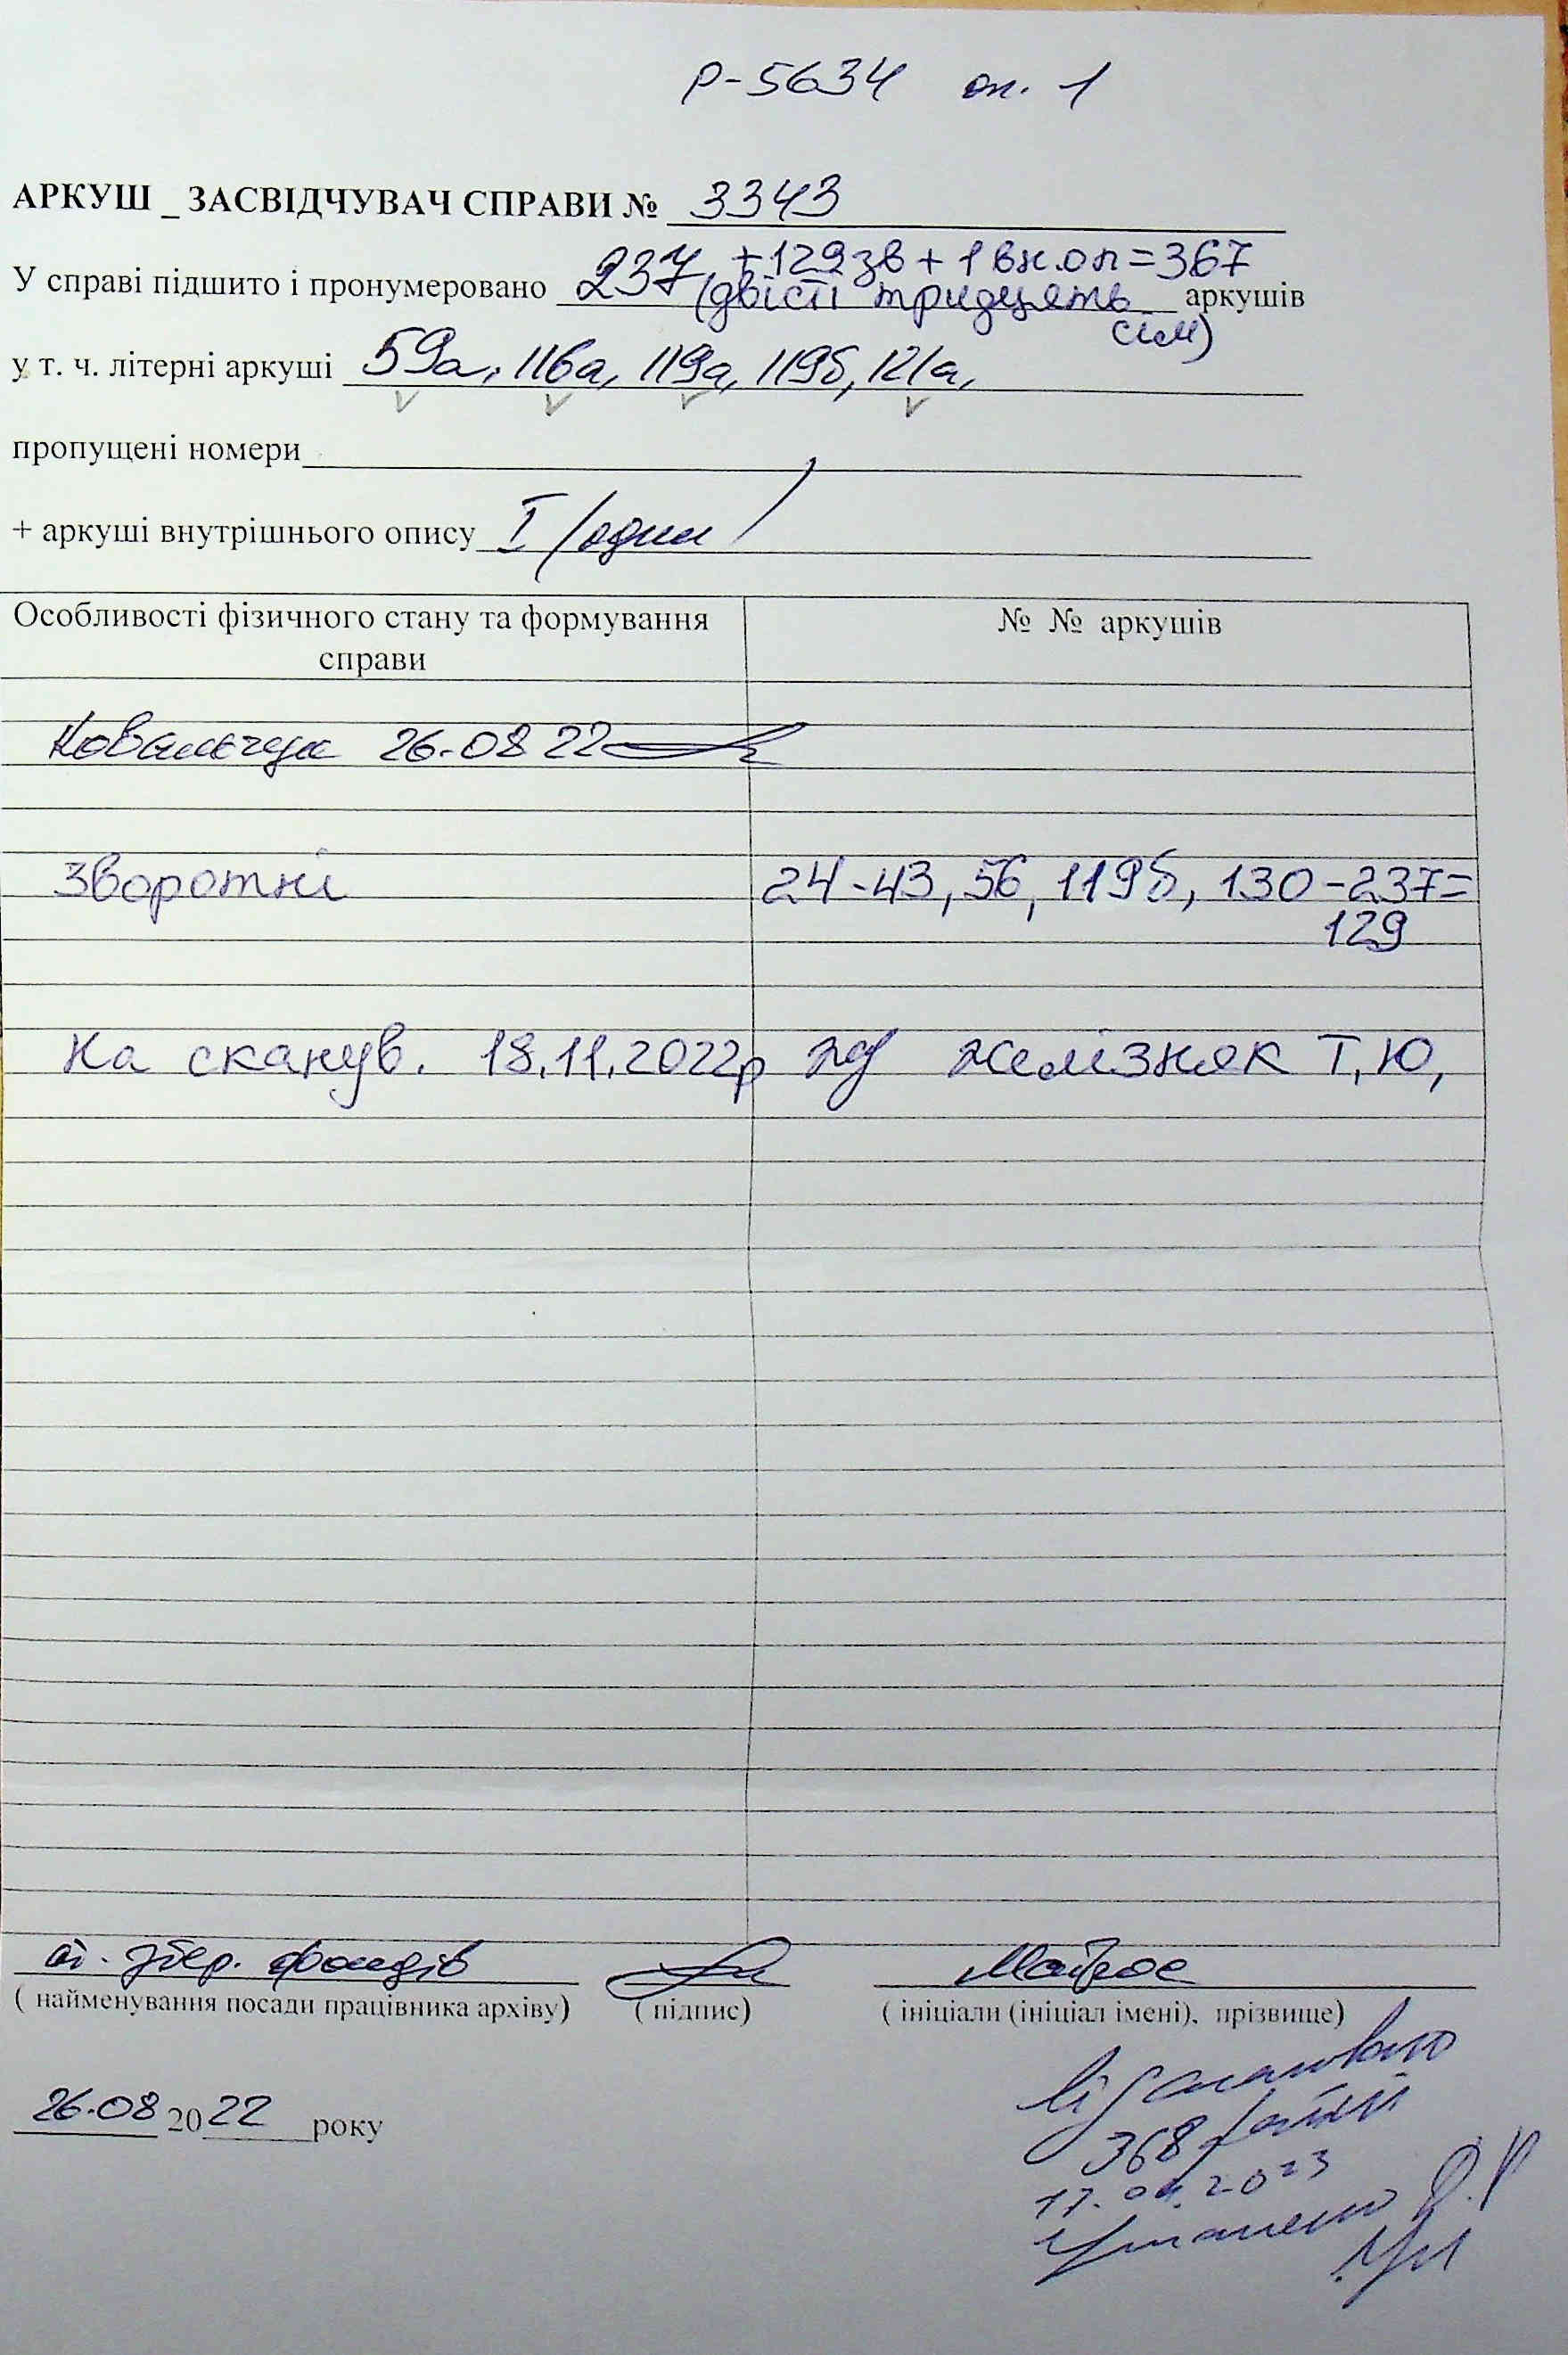 Р-5634 оп. 1
АРКУШ _ ЗАСВІДЧУВАЧ СПРАВИ № 3343
+129зв + 1 вн.оп=367
У справі підшито і пронумеровано 237 (двісті тридцять аркушів
сім)
у т. ч. літерні аркуші 59а, 116а, 119а, 119б, 121а,
пропущені номери
+ аркуші внутрішнього опису I /один/
Особливості фізичного стану та формування № № аркушів
справи
Ковальчук 26.08 22
Зворотні 24-43, 56, 119б, 130-237=
129
На сканув. 18.11.2022р Желізняк Т.Ю,
збер. фондів
( найменування посади працівника архіву) ( підпис) ( ініціали (ініціал імені), прізвище)
Відскановано
26.08 2022 року
368 файли
2023